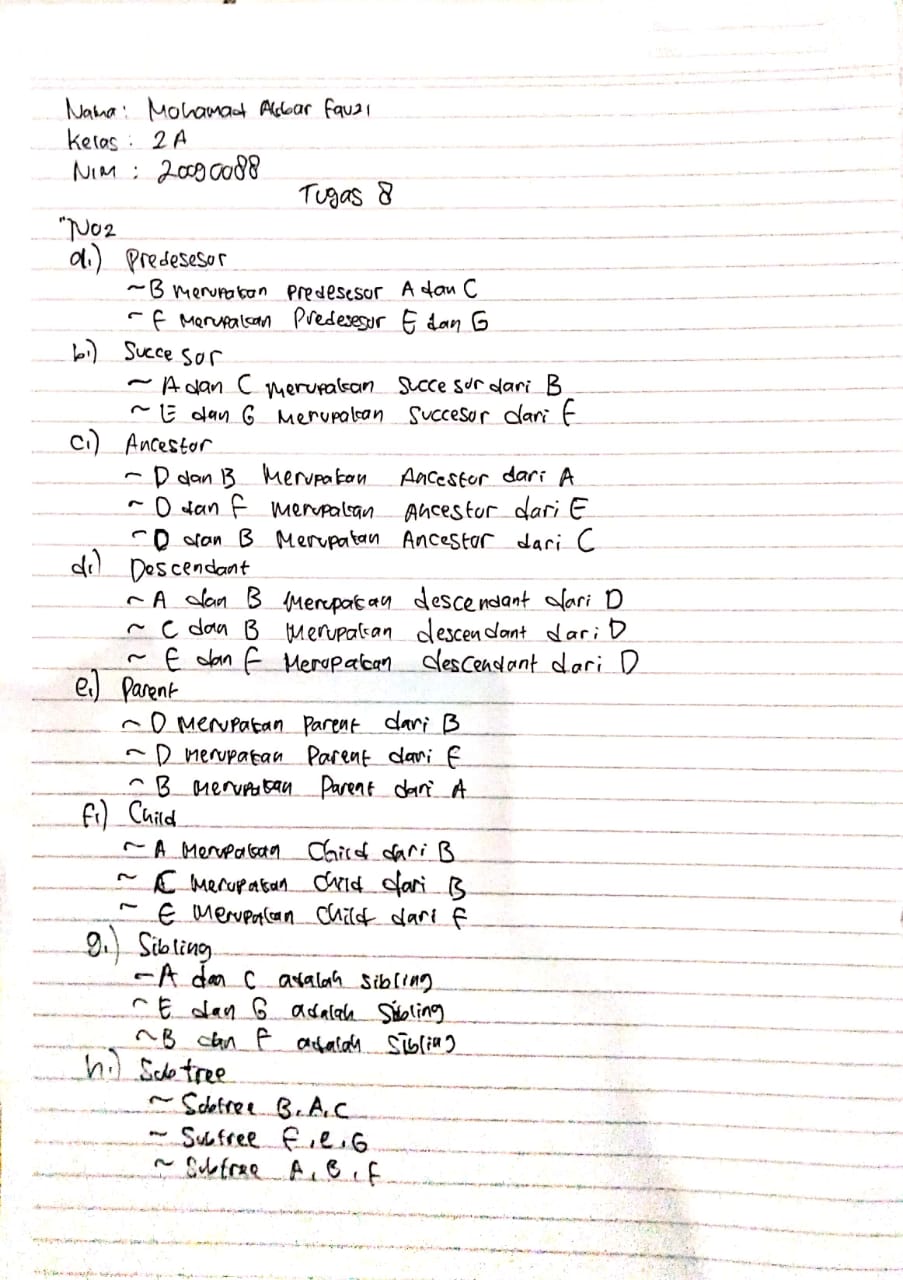 Nama: Mohamad Akbar Fauzi
Kelas : 2 A
NIM : 20090088
Tugas 8
"No2
a.) Predesesor
~ B Merupakan predesesor A dan C
~ F Merupakan Predesesor E dan G
b.) Succesor
~ A dan C Merupakan Succesor dari B
~ E dan G Merupakan Succesor dari F
c.) Ancestor
~ D dan B Merupakan Ancestor dari A
~ D dan F Merupakan Ancestor dari E
~ D dan B Merupakan Ancestor dari C
d.) Descendant
~ A dan B Merupakan descendant dari D
~ C dan B Merupakan descendant dari D
~ E dan F Merupakan descendant dari D
e.) Parent
~ D Merupakan Parent dari B
~ D Merupakan Parent dari F
~ B Merupakan Parent dari A
f.) Child
~ A Merupakan Child dari B
~ C Merupakan Child dari B
~ E Merupakan Child dari F
g.) Sibling
~ A dan C adalah sibling
~ E dan G adalah Sibling
~ B dan F adalah Sibling
h.) Subtree
~ Subtree B, A, C
~ Subtree F, e, G
~ Subtree A, B, F